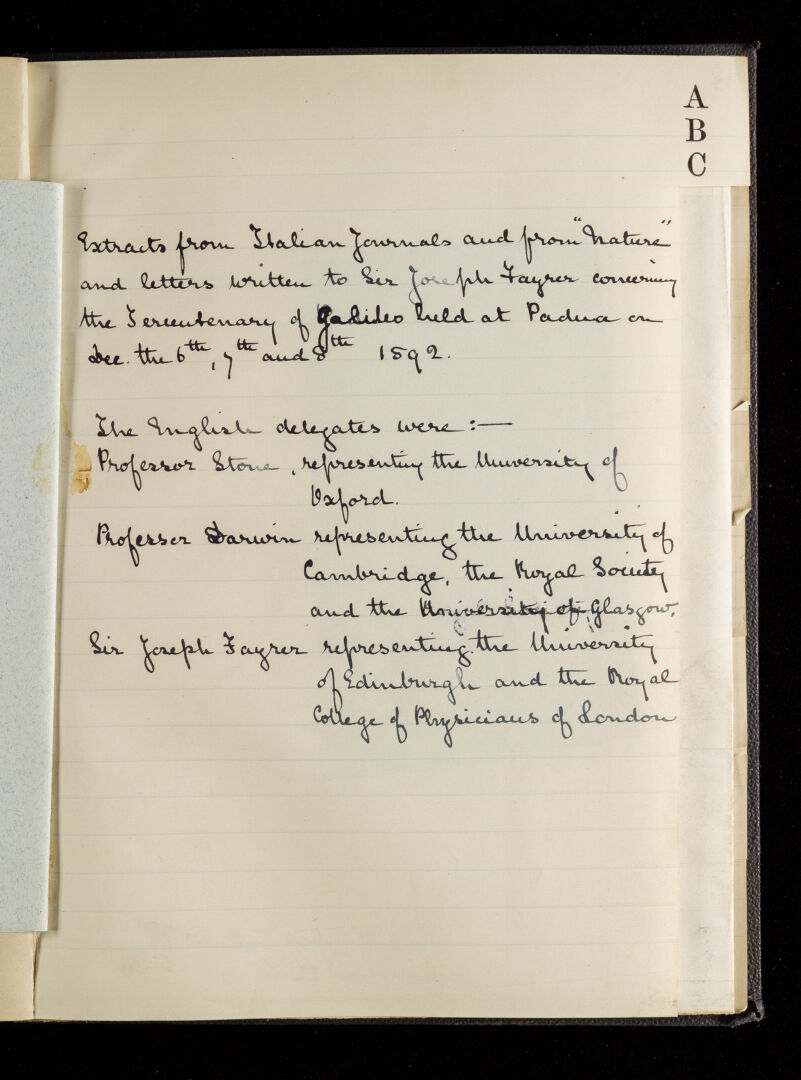 A
B
C
Extracts from Italian Journals and from "Nature"
and letters written to Sir Joseph Fayrer concerning
the Tercentenary of Galileo held at Padua on
Dec. the 6th, 7th and 8th 1892.
The English delegates were :—
Professor Stone, representing the University of
Oxford.
Professor Darwin representing the University of
Cambridge, the Royal Society
and the University of Glasgow.
Sir Joseph Fayrer representing the University
of Edinburgh and the Royal
College of Physicians of London